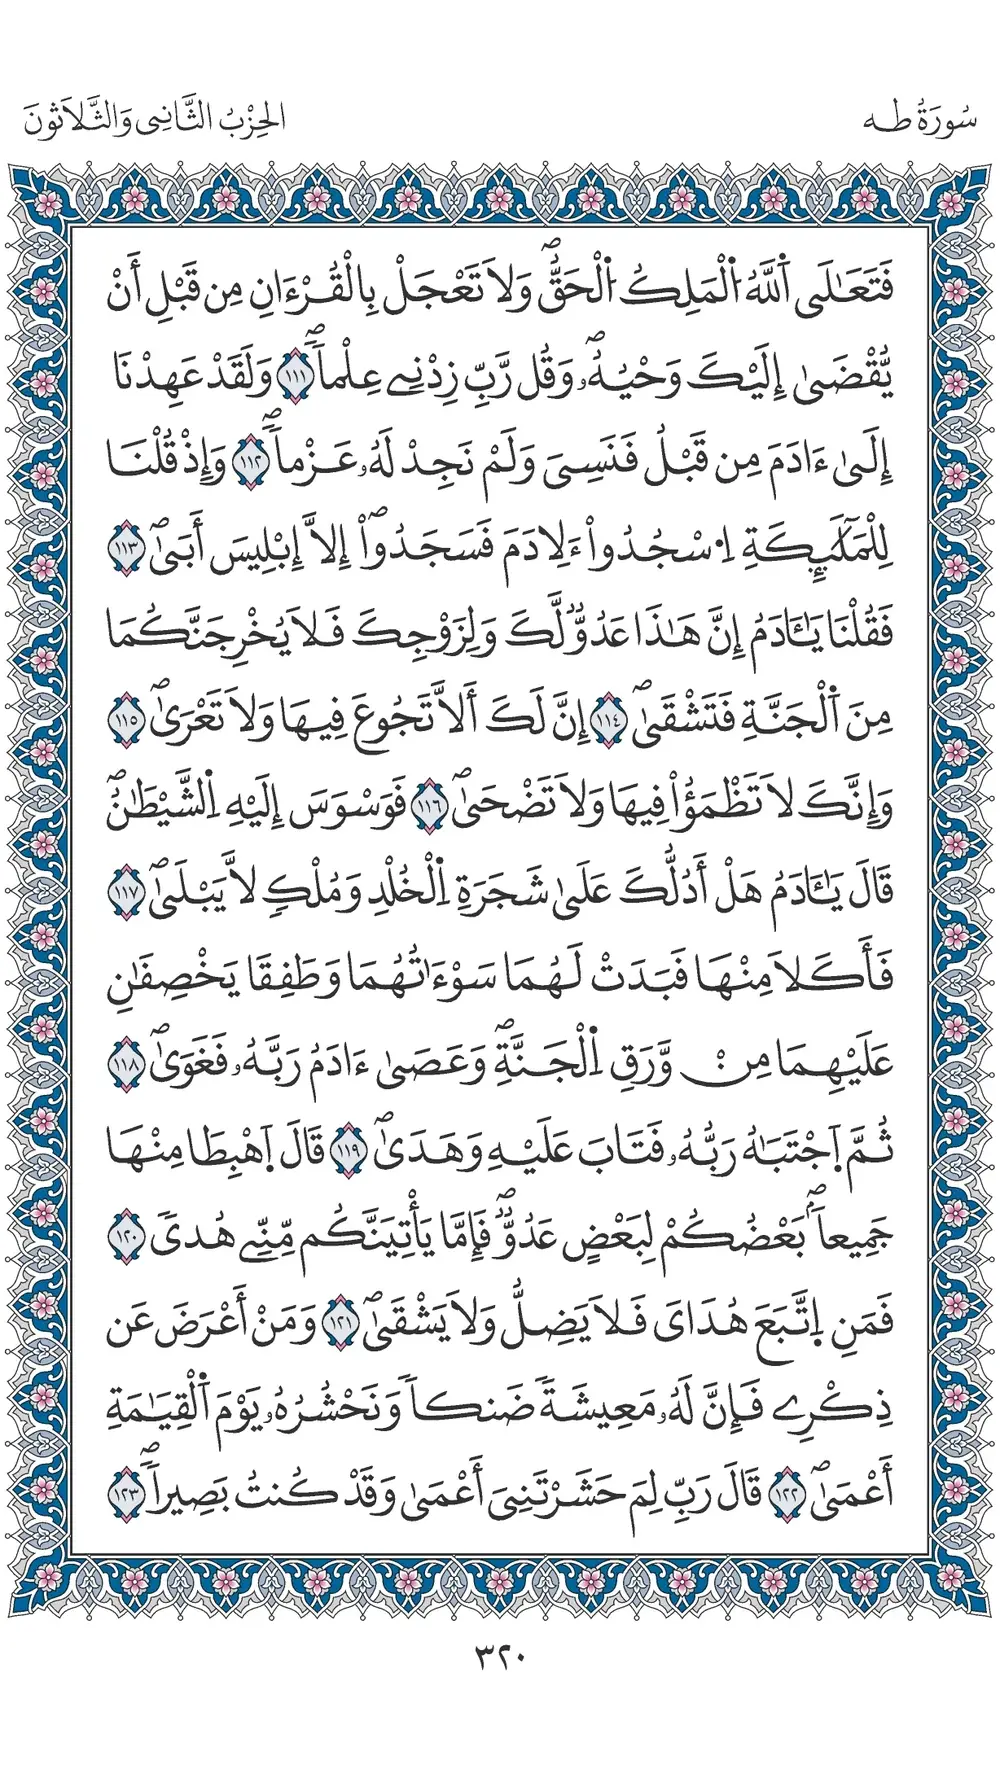 سُورَةُ طه
الحِزْبُ الثَّانِي وَالثَّلَاثُونَ
فَتَعَٰلَى اَ۬للَّهُ اُ۬لْمَلِكُ اُ۬لْحَقُّۖ وَلَا تَعْجَلْ بِالْقُرْءَانِ مِن قَبْلِ أَنْ
يُّقْضَىٰ إِلَيْكَ وَحْيُهُۥۖ وَقُل رَّبِّ زِدْنِے عِلْماٗۖ ١١١ وَلَقَدْ عَهِدْنَا
إِلَىٰ ءَادَمَ مِن قَبْلُ فَنَسِىَ وَلَمْ نَجِدْ لَهُۥ عَزْماٗۖ ١١٢ وَإِذْ قُلْنَا
لِلْمَلَٰٓئِكَةِ اِ۟سْجُدُواْ ءَلِادَمَ فَسَجَدُوٓاْۖ إِلَّا إِبْلِيسَ أَبَىٰۖ ١١٣
فَقُلْنَا يَٰـَٔادَمُ إِنَّ هَٰذَا عَدُوّٞ لَّكَ وَلِزَوْجِكَ فَلَا يُخْرِجَنَّكُمَا
مِنَ اَ۬لْجَنَّةِ فَتَشْقَىٰۖ ١١٤ إِنَّ لَكَ أَلَّا تَجُوعَ فِيهَا وَلَا تَعْرَىٰۖ ١١٥
وَإِنَّكَ لَا تَظْمَؤُاْ فِيهَا وَلَا تَضْحَىٰۖ ١١٦ فَوَسْوَسَ إِلَيْهِ اِ۬لشَّيْطَٰنُۖ
قَالَ يَٰـَٔادَمُ هَلْ أَدُلُّكَ عَلَىٰ شَجَرَةِ اِ۬لْخُلْدِ وَمُلْكٖ لَّا يَبْلَىٰۖ ١١٧
فَأَكَلَا مِنْهَا فَبَدَتْ لَهُمَا سَوْءَٰتُهُمَا وَطَفِقَا يَخْصِفَٰنِ
عَلَيْهِمَا مِنْ وَّرَقِ اِ۬لْجَنَّةِۖ وَعَصَىٰ ءَادَمُ رَبَّهُۥ فَغَوَىٰۖ ١١٨
ثُمَّ اَ۪جْتَبَٰهُ رَبُّهُۥ فَتَابَ عَلَيْهِ وَهَدَىٰۖ ١١٩ قَالَ اَ۪هْبِطَا مِنْهَا
جَمِيعاَۢۖ بَعْضُكُمْ لِبَعْضٍ عَدُوّٞۖ فَإِمَّا يَأْتِيَنَّكُم مِّنِّے هُدىٗ ١٢٠
فَمَنِ اِ۪تَّبَعَ هُدَاىَ فَلَا يَضِلُّ وَلَا يَشْقَىٰۖ ١٢١ وَمَنْ أَعْرَضَ عَن
ذِكْرِے فَإِنَّ لَهُۥ مَعِيشَةٗ ضَنكاٗ وَنَحْشُرُهُۥ يَوْمَ اَ۬لْقِيَٰمَةِ
أَعْمَىٰۖ ١٢٢ قَالَ رَبِّ لِمَ حَشَرْتَنِىَ أَعْمَىٰ وَقَدْ كُنتُ بَصِيراٗۖ ١٢٣
٣٢٠